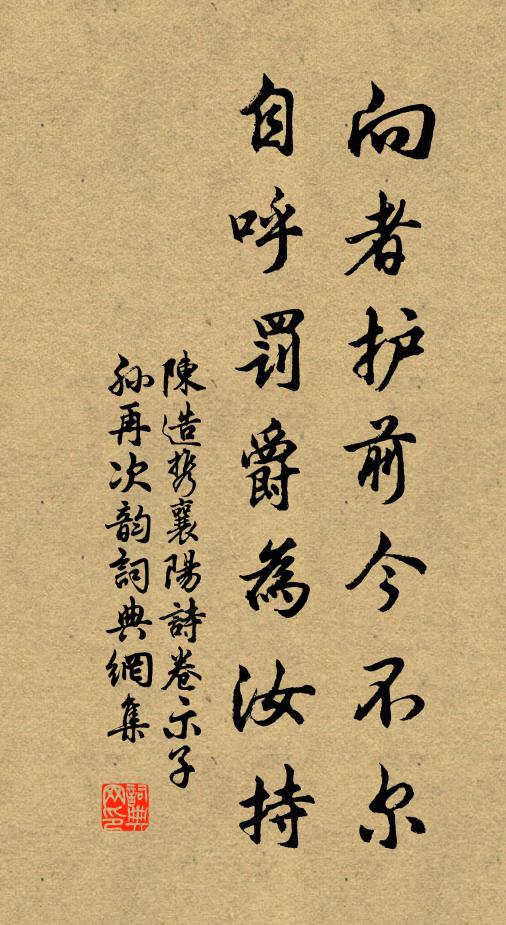 向者护前今不尔
自呼罚爵為汝持
陳造携襄陽詩卷示子
孙再次韵詞典網集
詞典网印